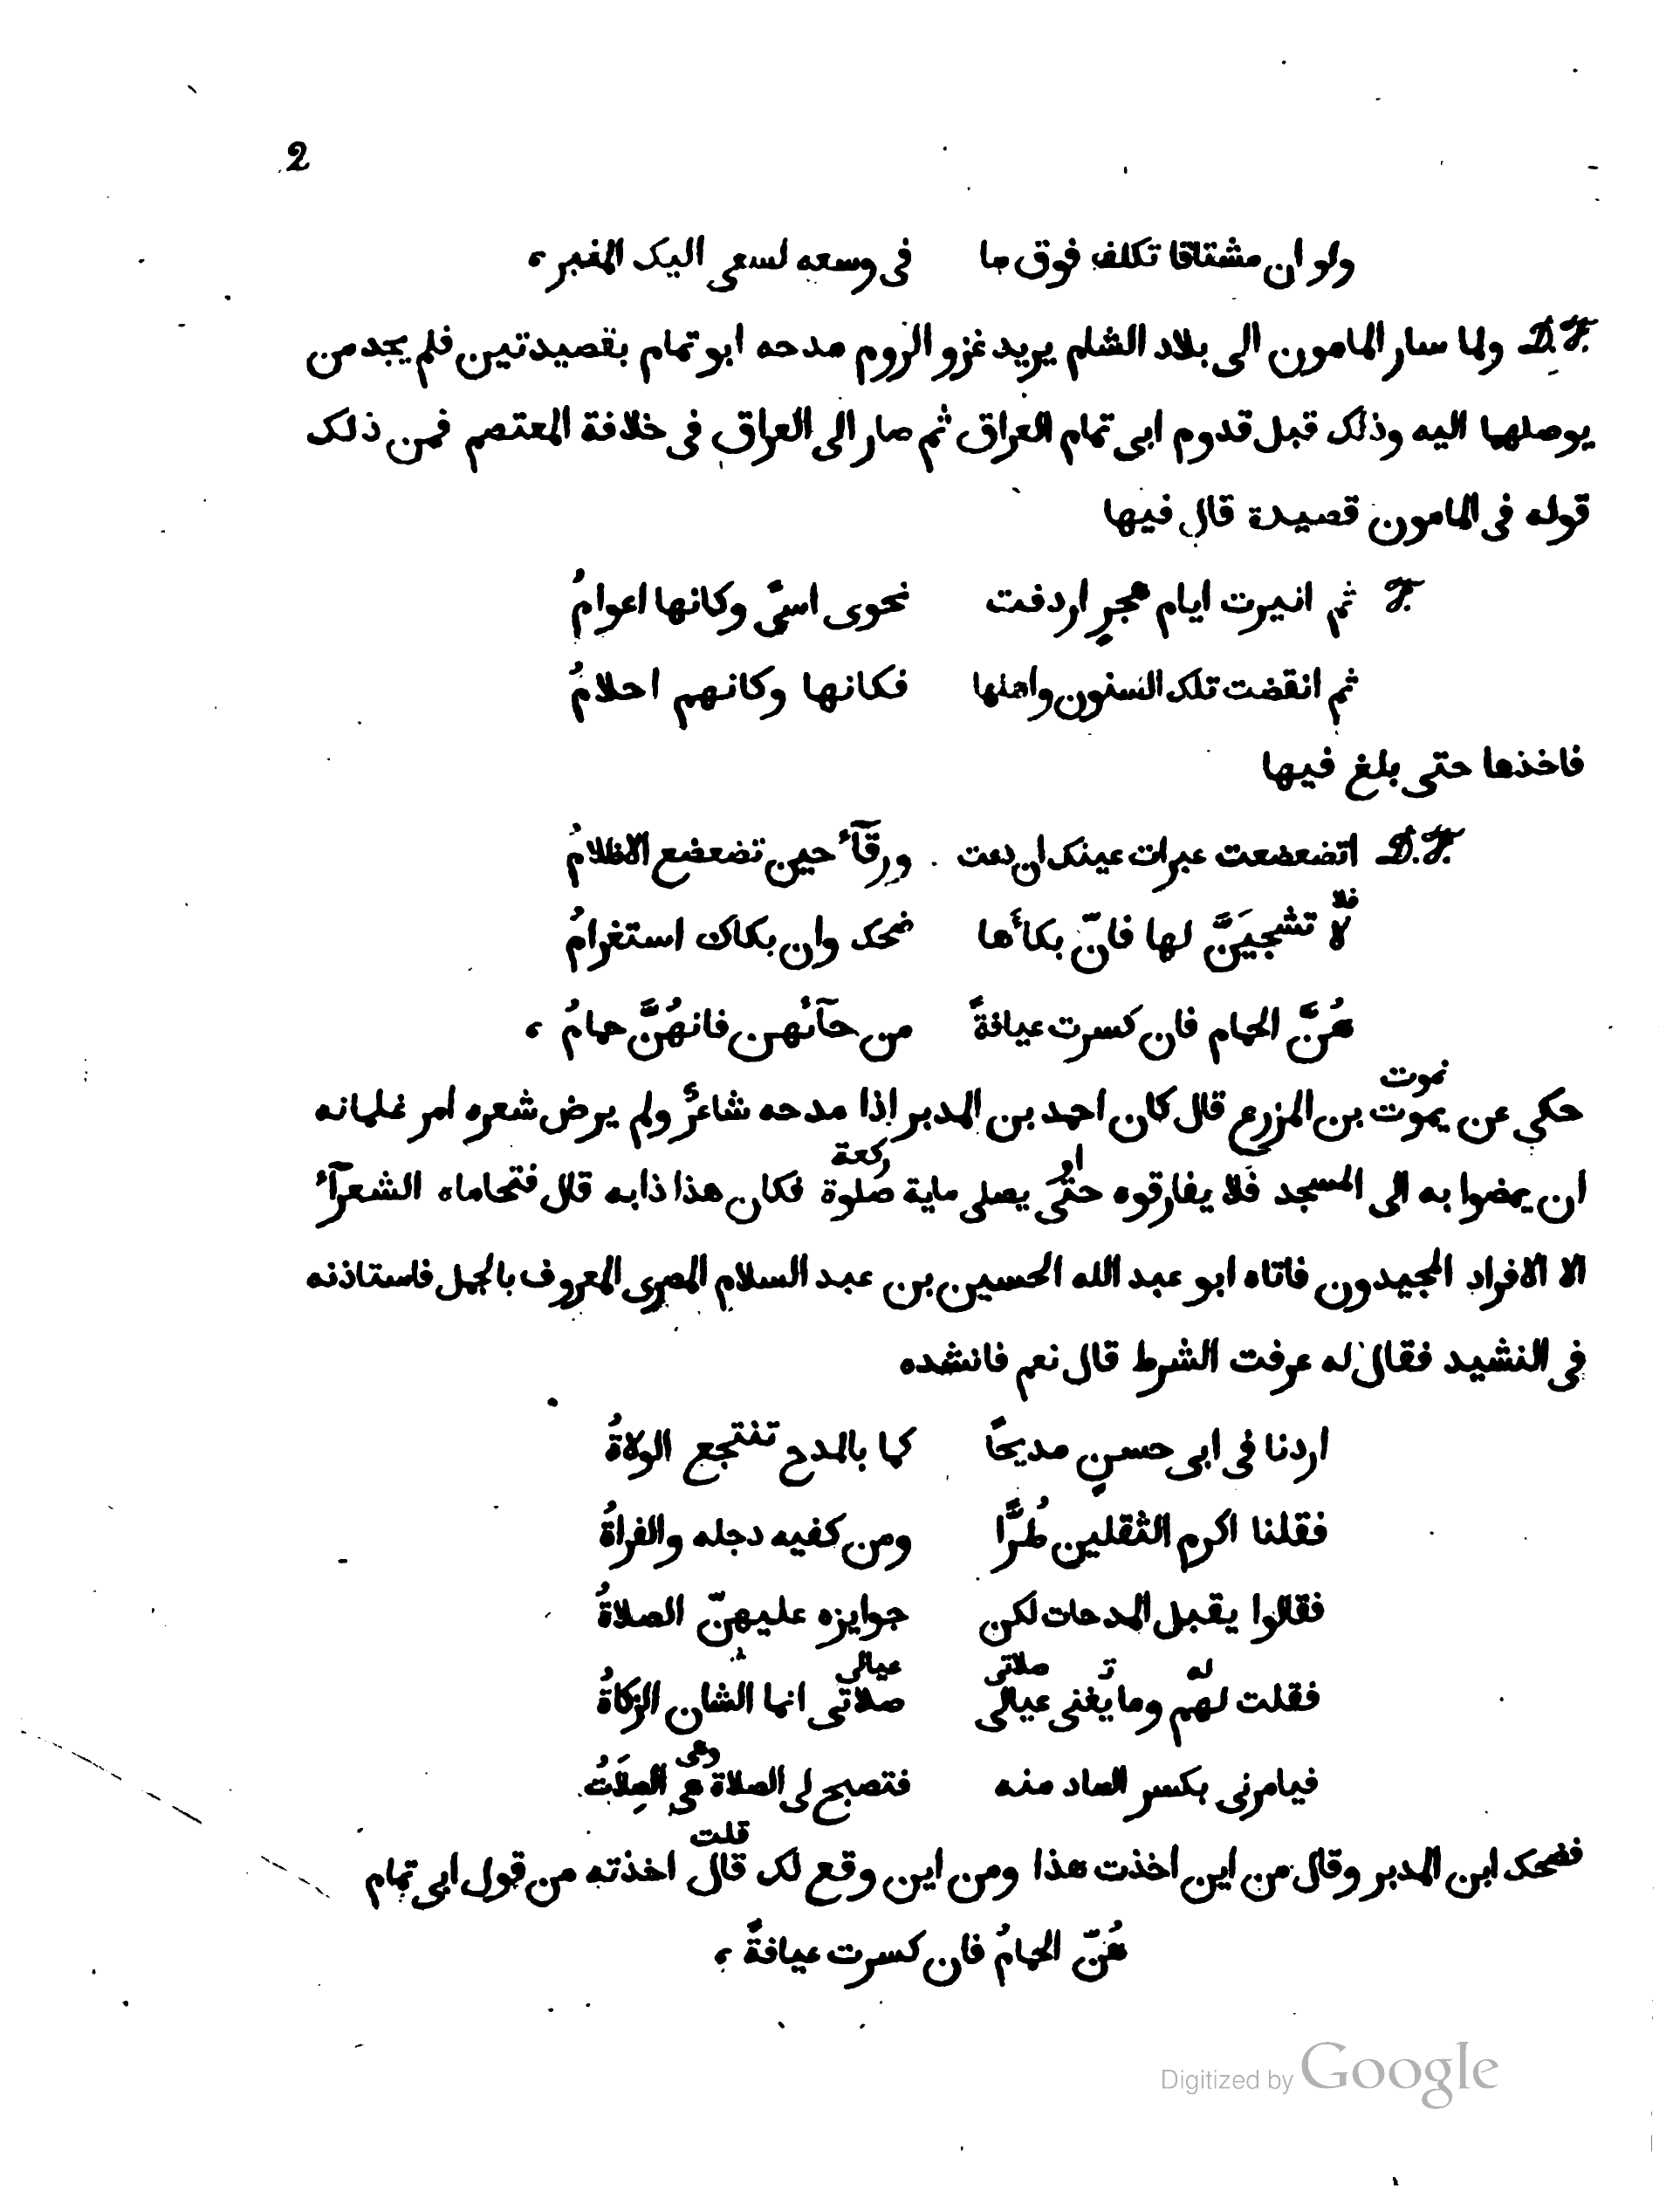 2
ولو ان مشتاقا تكلف فوق ما فى وسعه لسعى اليك المنبر ،
D. F. ولما سار المامون الى بلاد الشام يريد غزو الروم مدحه ابو تمام بقصيدتين فلم يجد من
يوصلهما اليه وذلك قبل قدوم ابى تمام العراق ثم صار الى العراق فى خلافة المعتصم فمن ذلك
قوله فى المامون قصيدة قال فيها
F. ثم انبرت ايام هجرٍ اردفت نحوى اسىً وكانها اعوامُ
ثم انقضت تلك السنون واهلها فكانها وكانهم احلامُ
فاخذها حتى بلغ فيها
D. F. اتضعضعت عبرات عينك ان دعت ورقآءُ حين تضعضع الاظلامُ
فلا
لا تشجيَنَّ لها فانّ بكأها ضحك وان بكاك استغرامُ
هُنَّ الحمام فان كسرت عيافةً من حآئهن فانهُنَّ حمامُ ،
نموت
حكي عن يموت بن المزرع قال كان احمد بن المدبر إذا مدحه شاعرٌ ولم يرض شعره امر غلمانه
او ركعة
ان يمضوا به الى المسجد فلا يفارقوه حتى يصلى ماية صلوة فكان هذا دابه قال فتحاماه الشعرآءُ
الا الافراد المجيدون فاتاه ابو عبد الله الحسين بن عبد السلام المصرى المعروف بالجمل فاستاذنه
فى النشيد فقال له عرفت الشرط قال نعم فانشده
اردنا فى ابى حسنٍ مديحًا كما بالمدح تنتجع الولاةُ
فقلنا اكرم الثقلين طُرًّا ومن كفيه دجله والفراةُ
فقالوا يقبل المدحات لكن جوايزه عليهنّ الصلاةُ
له ت صلاتى عيالى
فقلت لهم وما يغنى عيالى صلاتى انما الشان الزكاةُ
وهى
فيامرنى بكسر الصاد منه فتصبح لى الصلاة هى الصِلَاتُ
قلت
فضحك ابن المدبر وقال من اين اخذت هذا ومن اين وقع لك قال اخذته من قول ابى تمام
هُنّ الحمامُ فان كسرت عيافةً ،
Digitized by Google